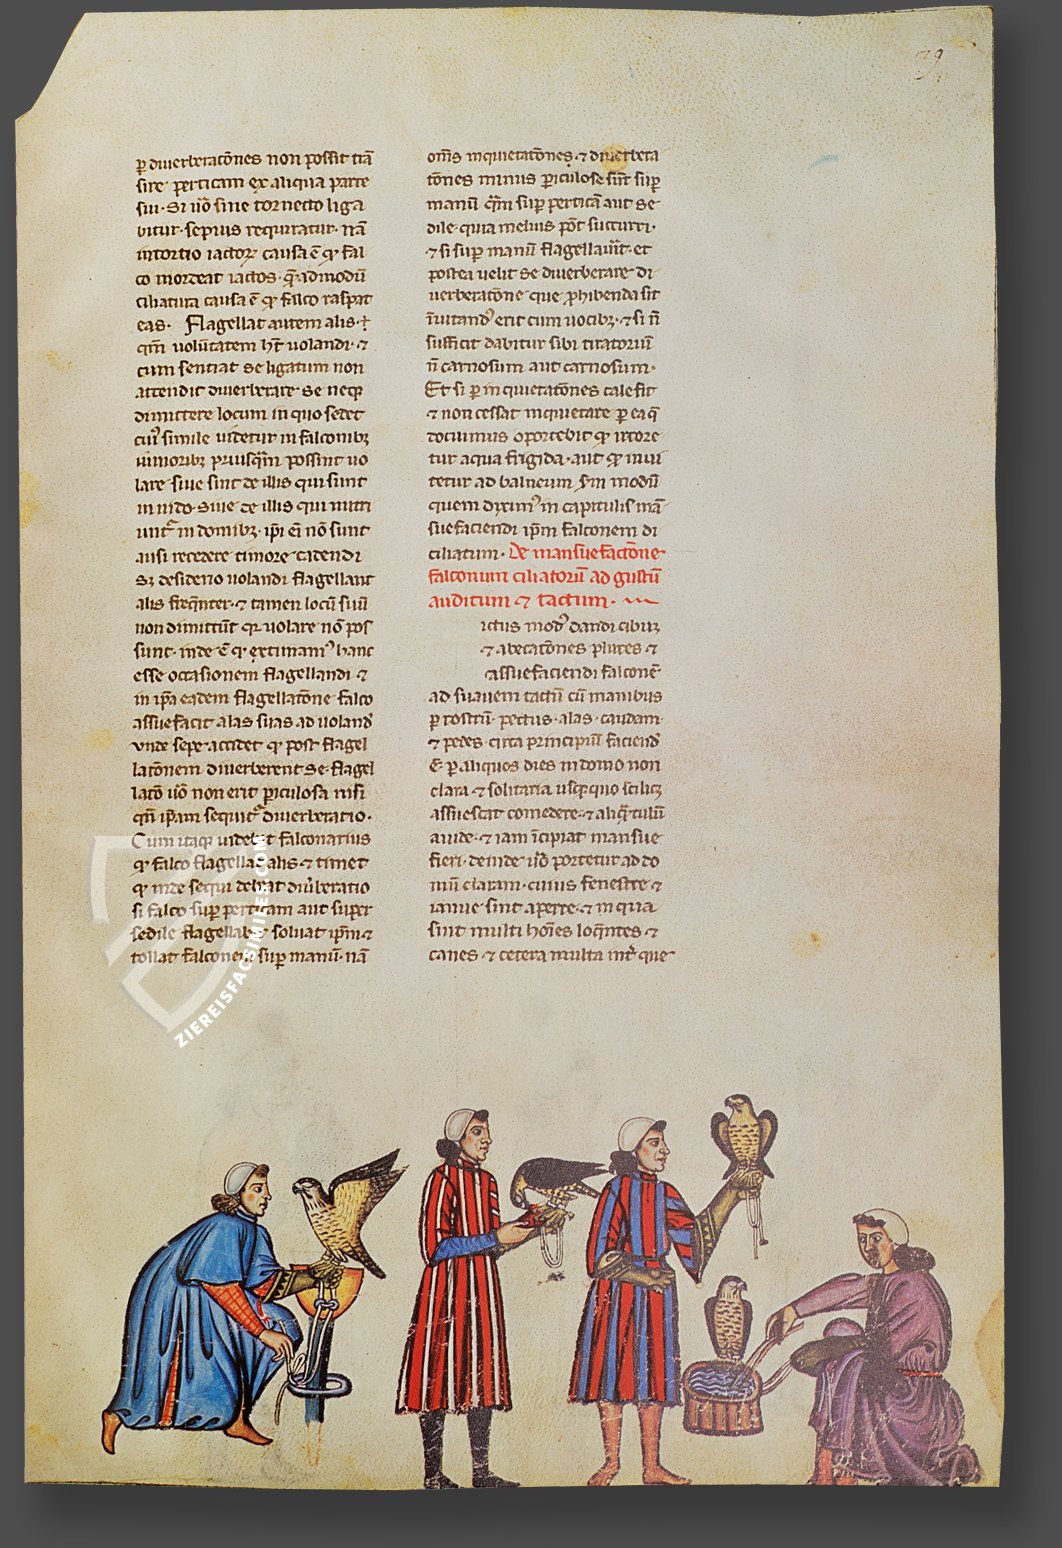 79
ꝑ diuerberatōnes non possit trā
sire perticam ex aliqua parte
sui· Si ūo sine tornetto liga
bitur· sepius requiratur· nā
intortio iactoꝝ causa ē ꝙ fal
co mordeat iactos· q̄admodū
ciliatura causa ē ꝙ falco raspat
eas· Flagellat autem alis·
qm̄ uolūtatem ht̄ uolandi· ⁊
cum sentiat se ligatum non
attendit diuerberare se neqꝫ
dimittere locum in quo sedet
cuiꝰ simile uidetur in falconibꝫ
iunioribꝫ priusqm̄ possint uo
lare siue sint de illis qui sunt
in nido· siue de illis qui nutri
unt᷑ in domibꝫ· ip̄i ei᷑ nō sunt
ausi recedere timore cadendi
Sꝫ desiderio uolandi flagellant
alis freq̄nter· ⁊ tamen locū suū
non dimittūt qꝛ uolare nō pos
sunt· inde ē ꝙ extimamꝰ hanc
esse occasionem flagellandi ⁊
in ip̄a eadem flagellatōne falco
assuefacit alas suas ad uolandꝰ
vnde sepe accidet ꝙ post flagel
latōnem diuerberent se· flagel
latō ūo non erit ꝑiculosa nisi
qn̄ ip̄am sequit᷑ diuerberatio·
Cum itaqꝫ uidebit falconarius
ꝙ falco flagellat alis ⁊ timet
ꝙ inde sequi debeat diūberatio
si falco suꝑ perticam aut super
sedile flagellabit soluat ip̄m ⁊
tollat falconem suꝑ manū· nā
om̄s inquietatōnes· ⁊ diuerbera
tōnes minus ꝑiculose sūt suꝑ
manū qm̄ suꝑ perticā aut se
dile· quia melius pōt succurri·
⁊ si suꝑ manū flagellauit· et
postea uelit se diuerberare di
uerberatōne que ꝓhibenda sit
īuitandꝰ erit cum uocibꝫ· ⁊ si n̄
sufficit dabitur sibi tiratoriū
n̄ carnosum aut carnosum·
Et si ꝑ inquietatōnes calefit
⁊ non cessat inquietare ꝑ ea q̄
docuimus oportebit ꝙ irrore
tur aqua frigida· aut ꝙ inui
tetur ad balneum sm̄ modū
quem diximꝰ in capitulis mā
suefaciendi ip̄m falconem di
ciliatum· De mansuefactōne
falconum ciliatorū ad gustū
auditum ⁊ tactum·
ictus modꝰ dandi cibuꝫ
⁊ abecatōnes plures ⁊
assuefaciendi falconē
ad suauem tactū cū manibus
ꝑ rostrū· pectus· alas· caudam
⁊ pedes· circa principiū faciendꝰ
E ꝑ aliquos dies in domo non
clara ⁊ solitaria usqꝫ quo scilicꝫ
assuescat comedere ⁊ aliq̄tulū
auide· ⁊ iam īcipiat mansue
fieri· deinde ūo portetur ad do
mū claram· cuius fenestre ⁊
ianue sint aperte· ⁊ in qua
sint multi hoīes loq̄ntes ⁊
canes· ⁊ cetera multa int᷑ que
ZIEREISFACSIMILES.COM